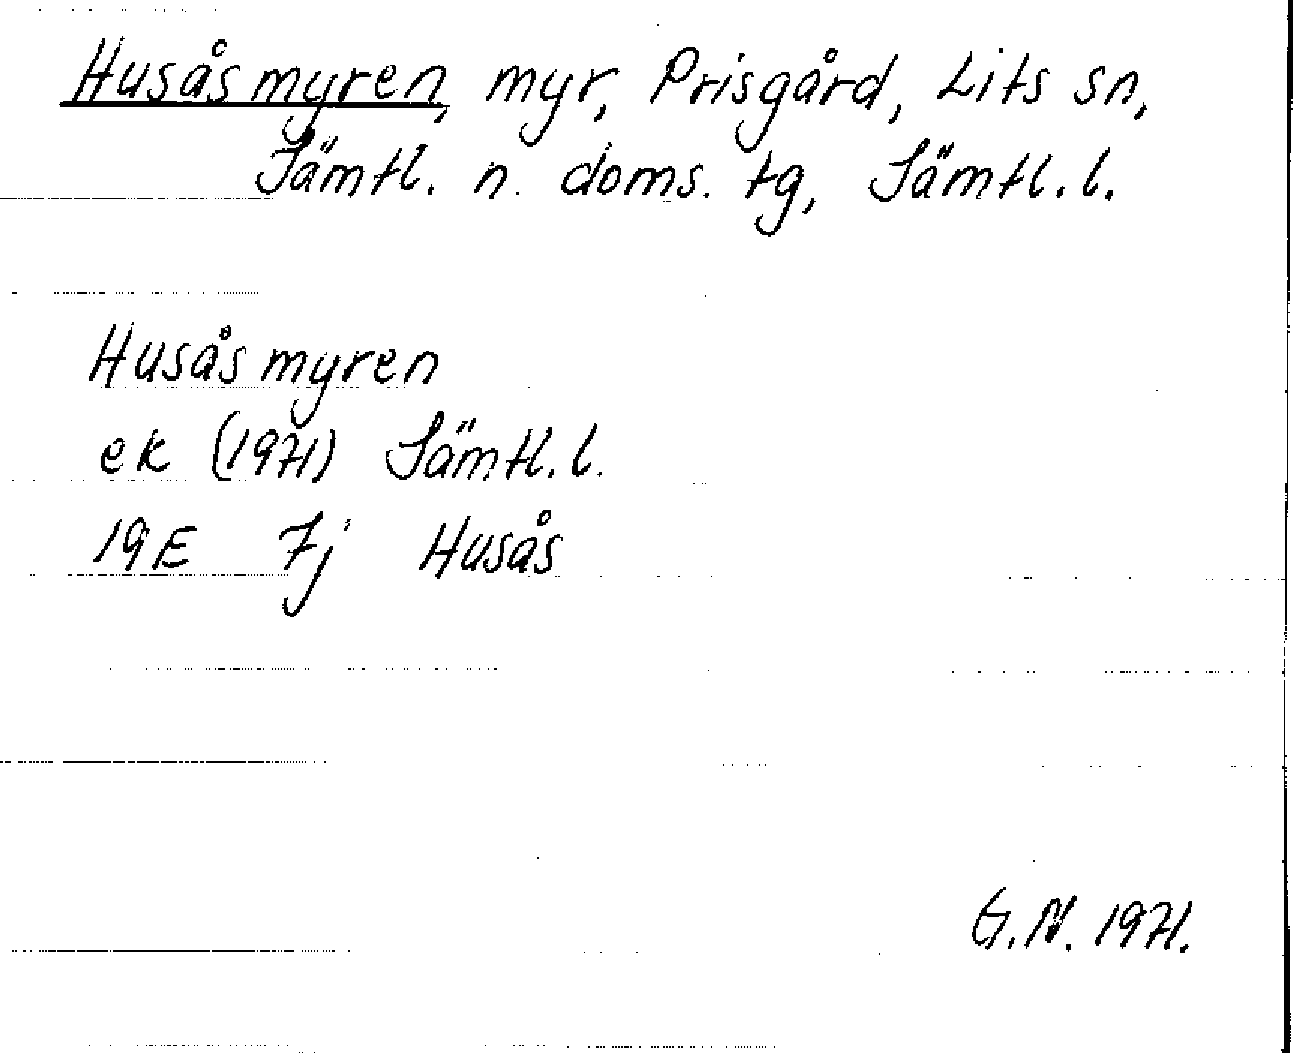 Husåsmyren, myr, Prisgård, Lits sn,
Jämtl. n. doms. tg, Jämtl. l.
Husåsmyren
ek (1971) Jämtl. l.
19E 7j Husås
G.N. 1971.